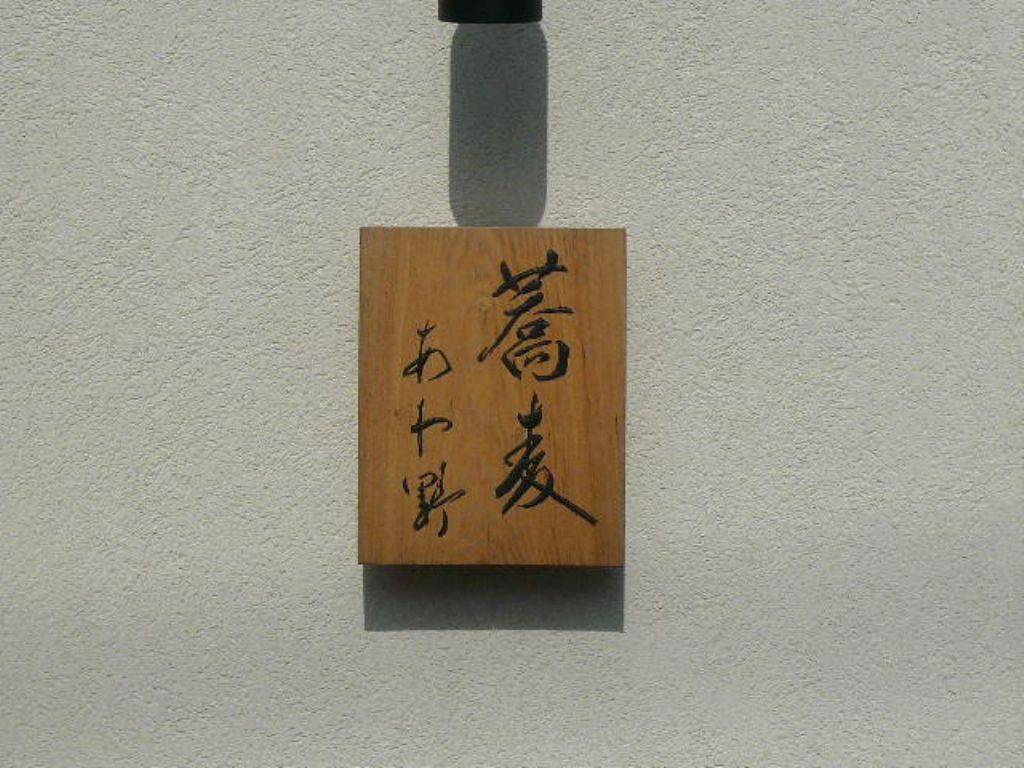 蕎麦
あわ野